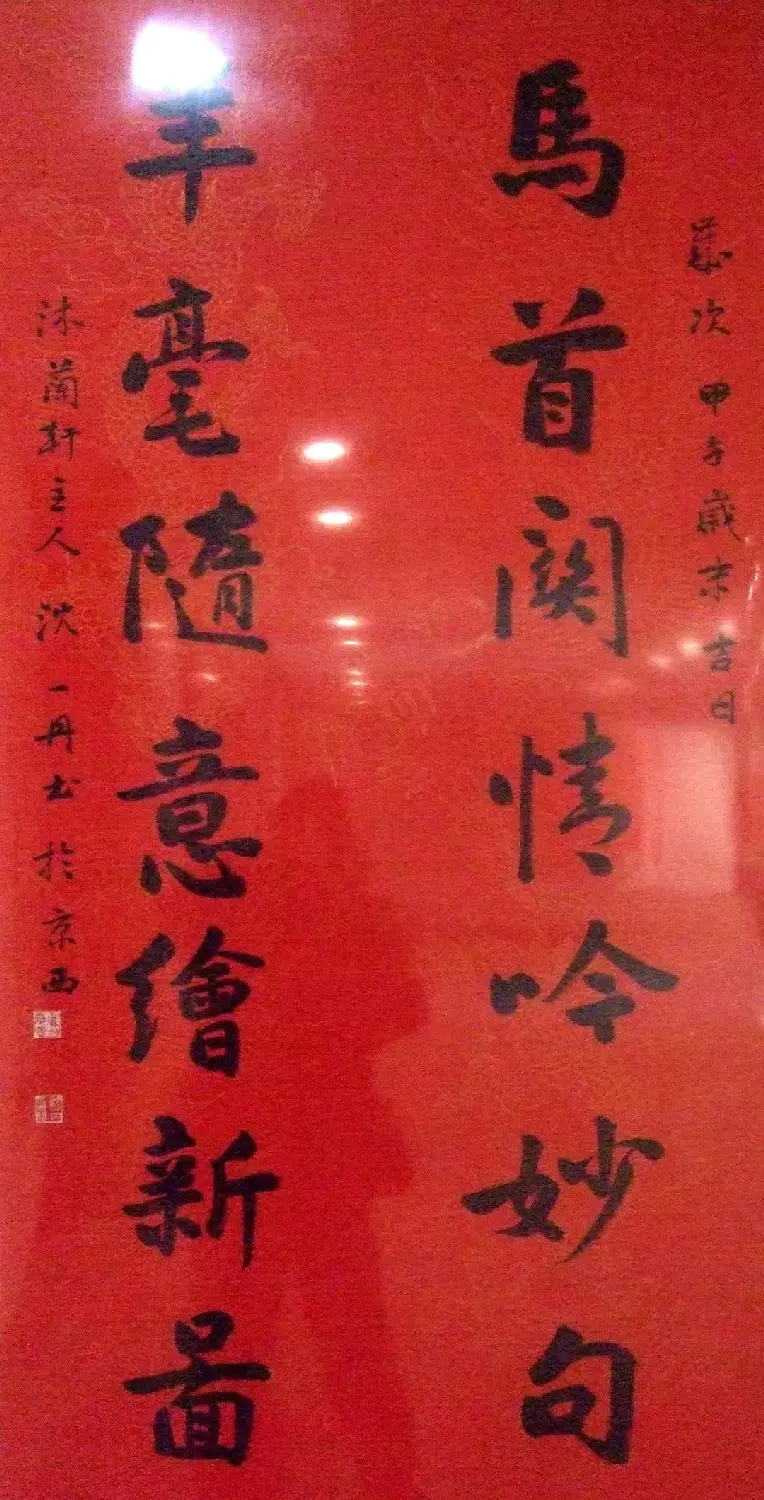 歲次甲午歲末吉日
馬首關情吟妙句
羊毫隨意繪新圖
沐蘭軒主人沈一丹书於京西